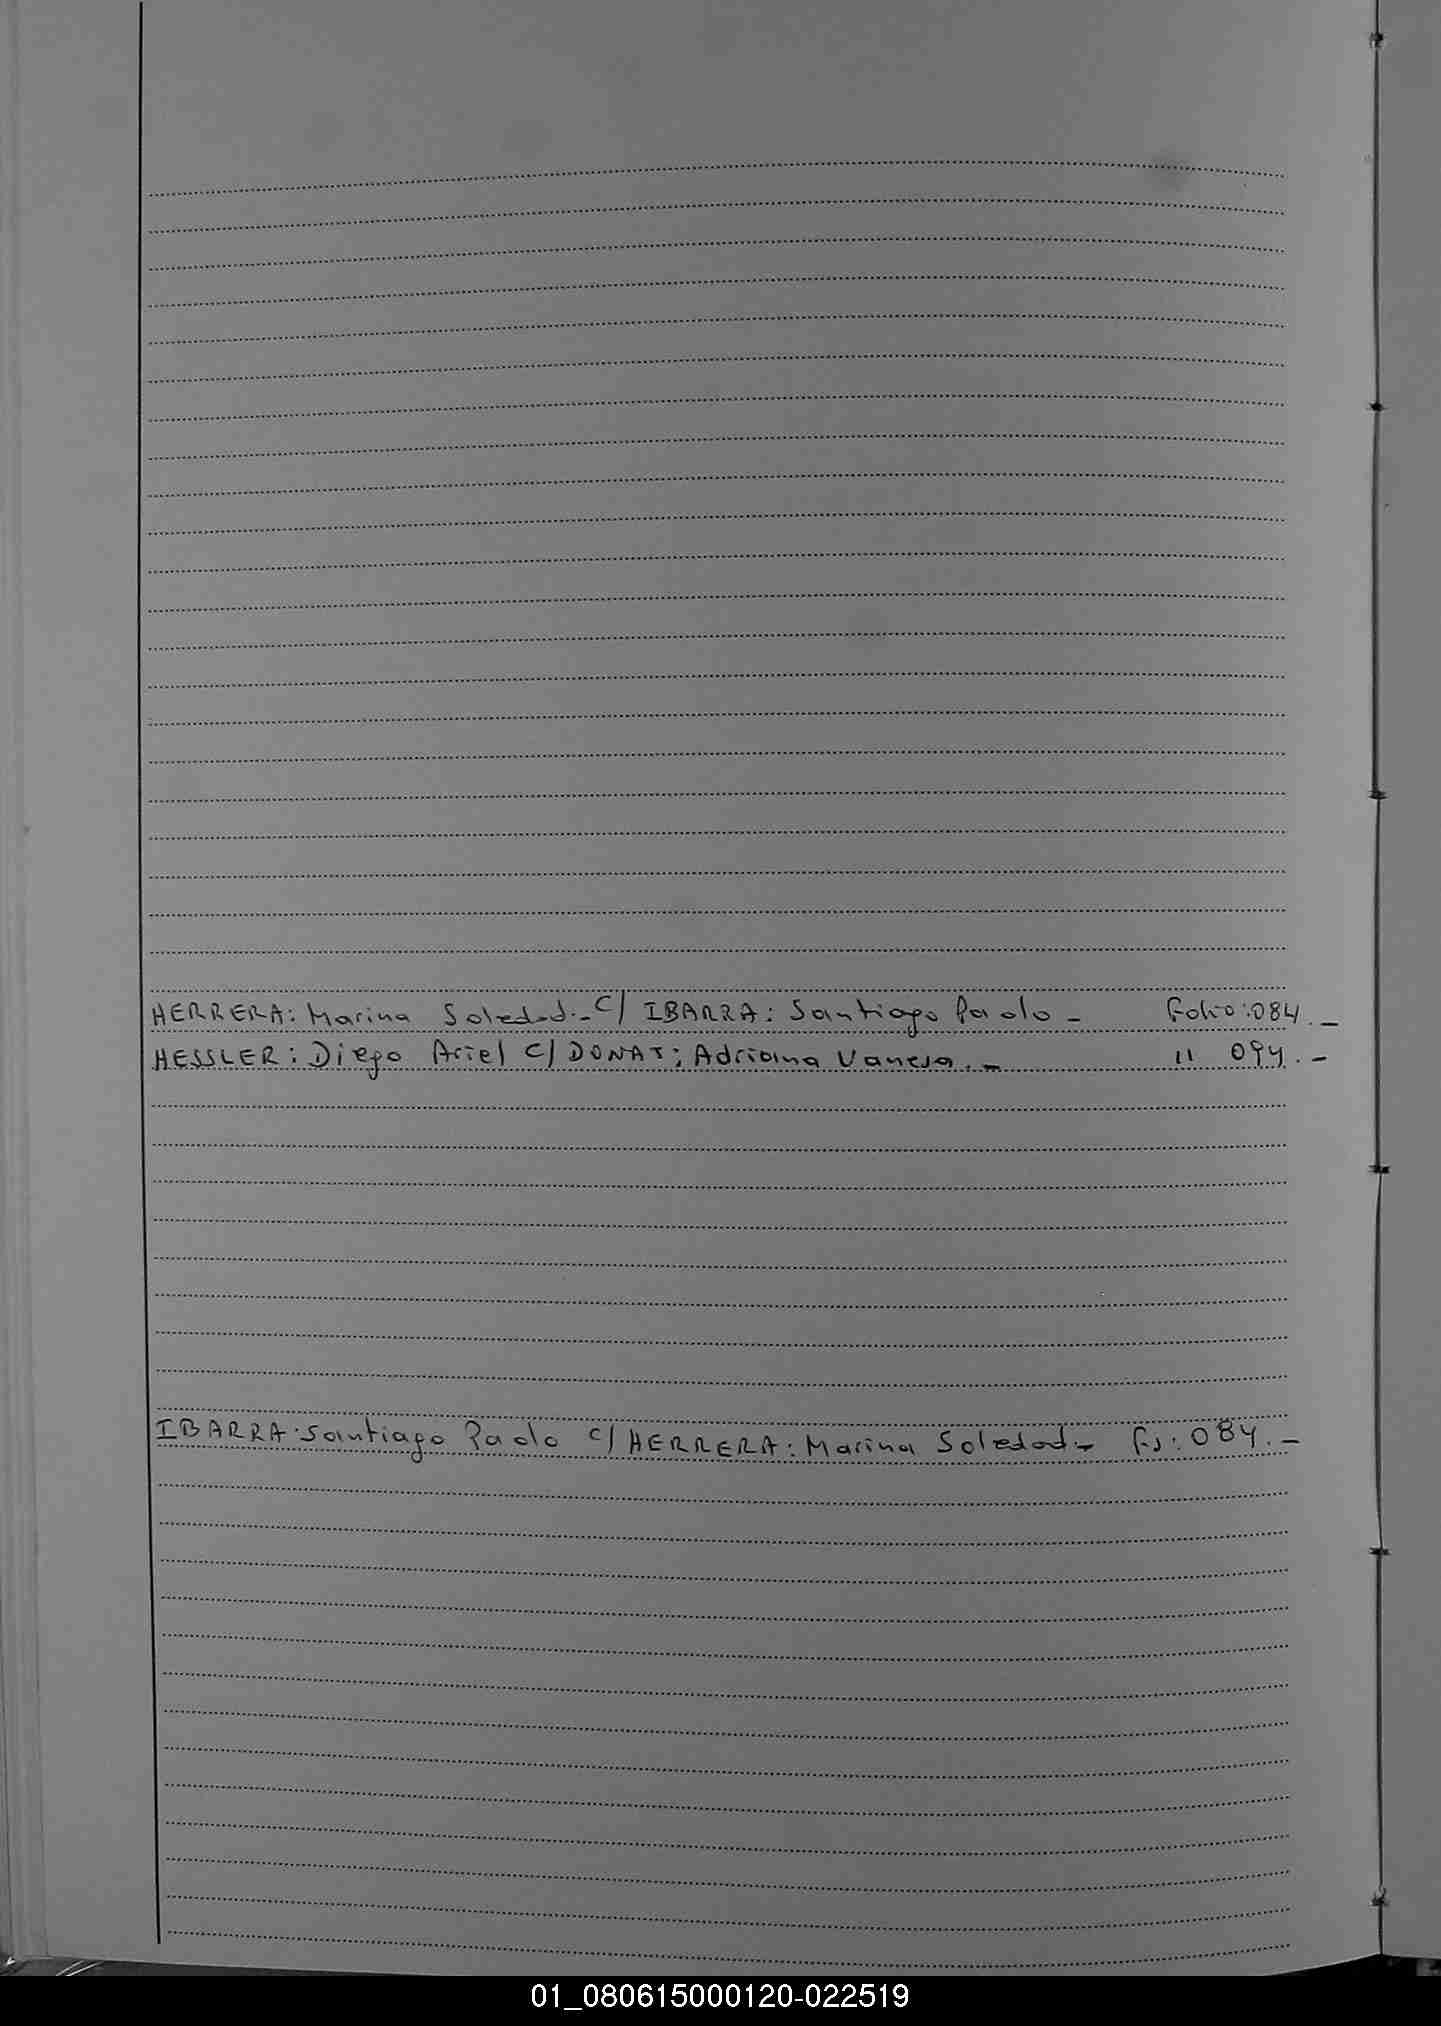 HERRERA: Marina Soledad.- C/ IBARRA: Santiago Paolo - Folio: 084. -
HESSLER: Diego Ariel C/ DONAT; Adriana Vanesa. - " 094. -
IBARRA: Santiago Paolo C/ HERRERA: Marina Soledad.- Fs: 084. -
01_080615000120-022519